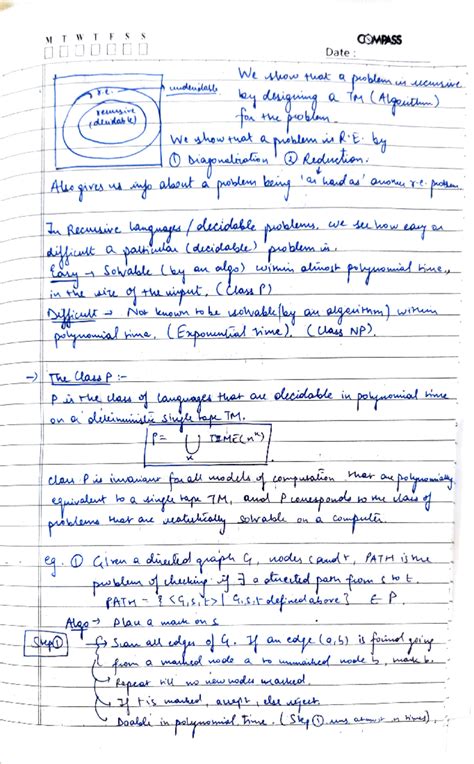 M T W T F S S
COMPASS
Date :
r.e.
recursive
(decidable)
undecidable
We show that a problem is recursive
by designing a TM (Algorithm)
for the problem.
We show that a problem is R.E. by
① Diagonalization ② Reduction.
Also gives us info about a problem being 'as hard as' another r.e. problem.
In Recursive languages / decidable problems, we see how easy or
difficult a particular (decidable) problem is.
Easy → Solvable (by an algo) within almost polynomial time,
in the size of the input, (Class P)
Difficult → Not known to be solvable [by an algorithm] within
polynomial time, (Exponential time), (Class NP).
→ The Class P :-
P is the class of languages that are decidable in polynomial time
on a deterministic single tape TM.
P = ⋃ TIME(n^k)
k
class P is invariant for all models of computation that are polynomially
equivalent to a single tape TM, and P corresponds to the class of
problems that are realistically solvable on a computer.
eg. ① Given a directed graph G, nodes s and t, PATH is the
problem of checking if ∃ a directed path from s to t.
PATH = { <G,s,t> | G,s,t defined above } ∈ P.
Algo → Place a mark on s
Step ① → Scan all edges of G. If an edge (a,b) is found going
from a marked node a to unmarked node b, mark b.
→ Repeat till no new nodes marked.
→ If t is marked, accept, else reject.
Doable in polynomial time. (Step ① runs atmost n times).